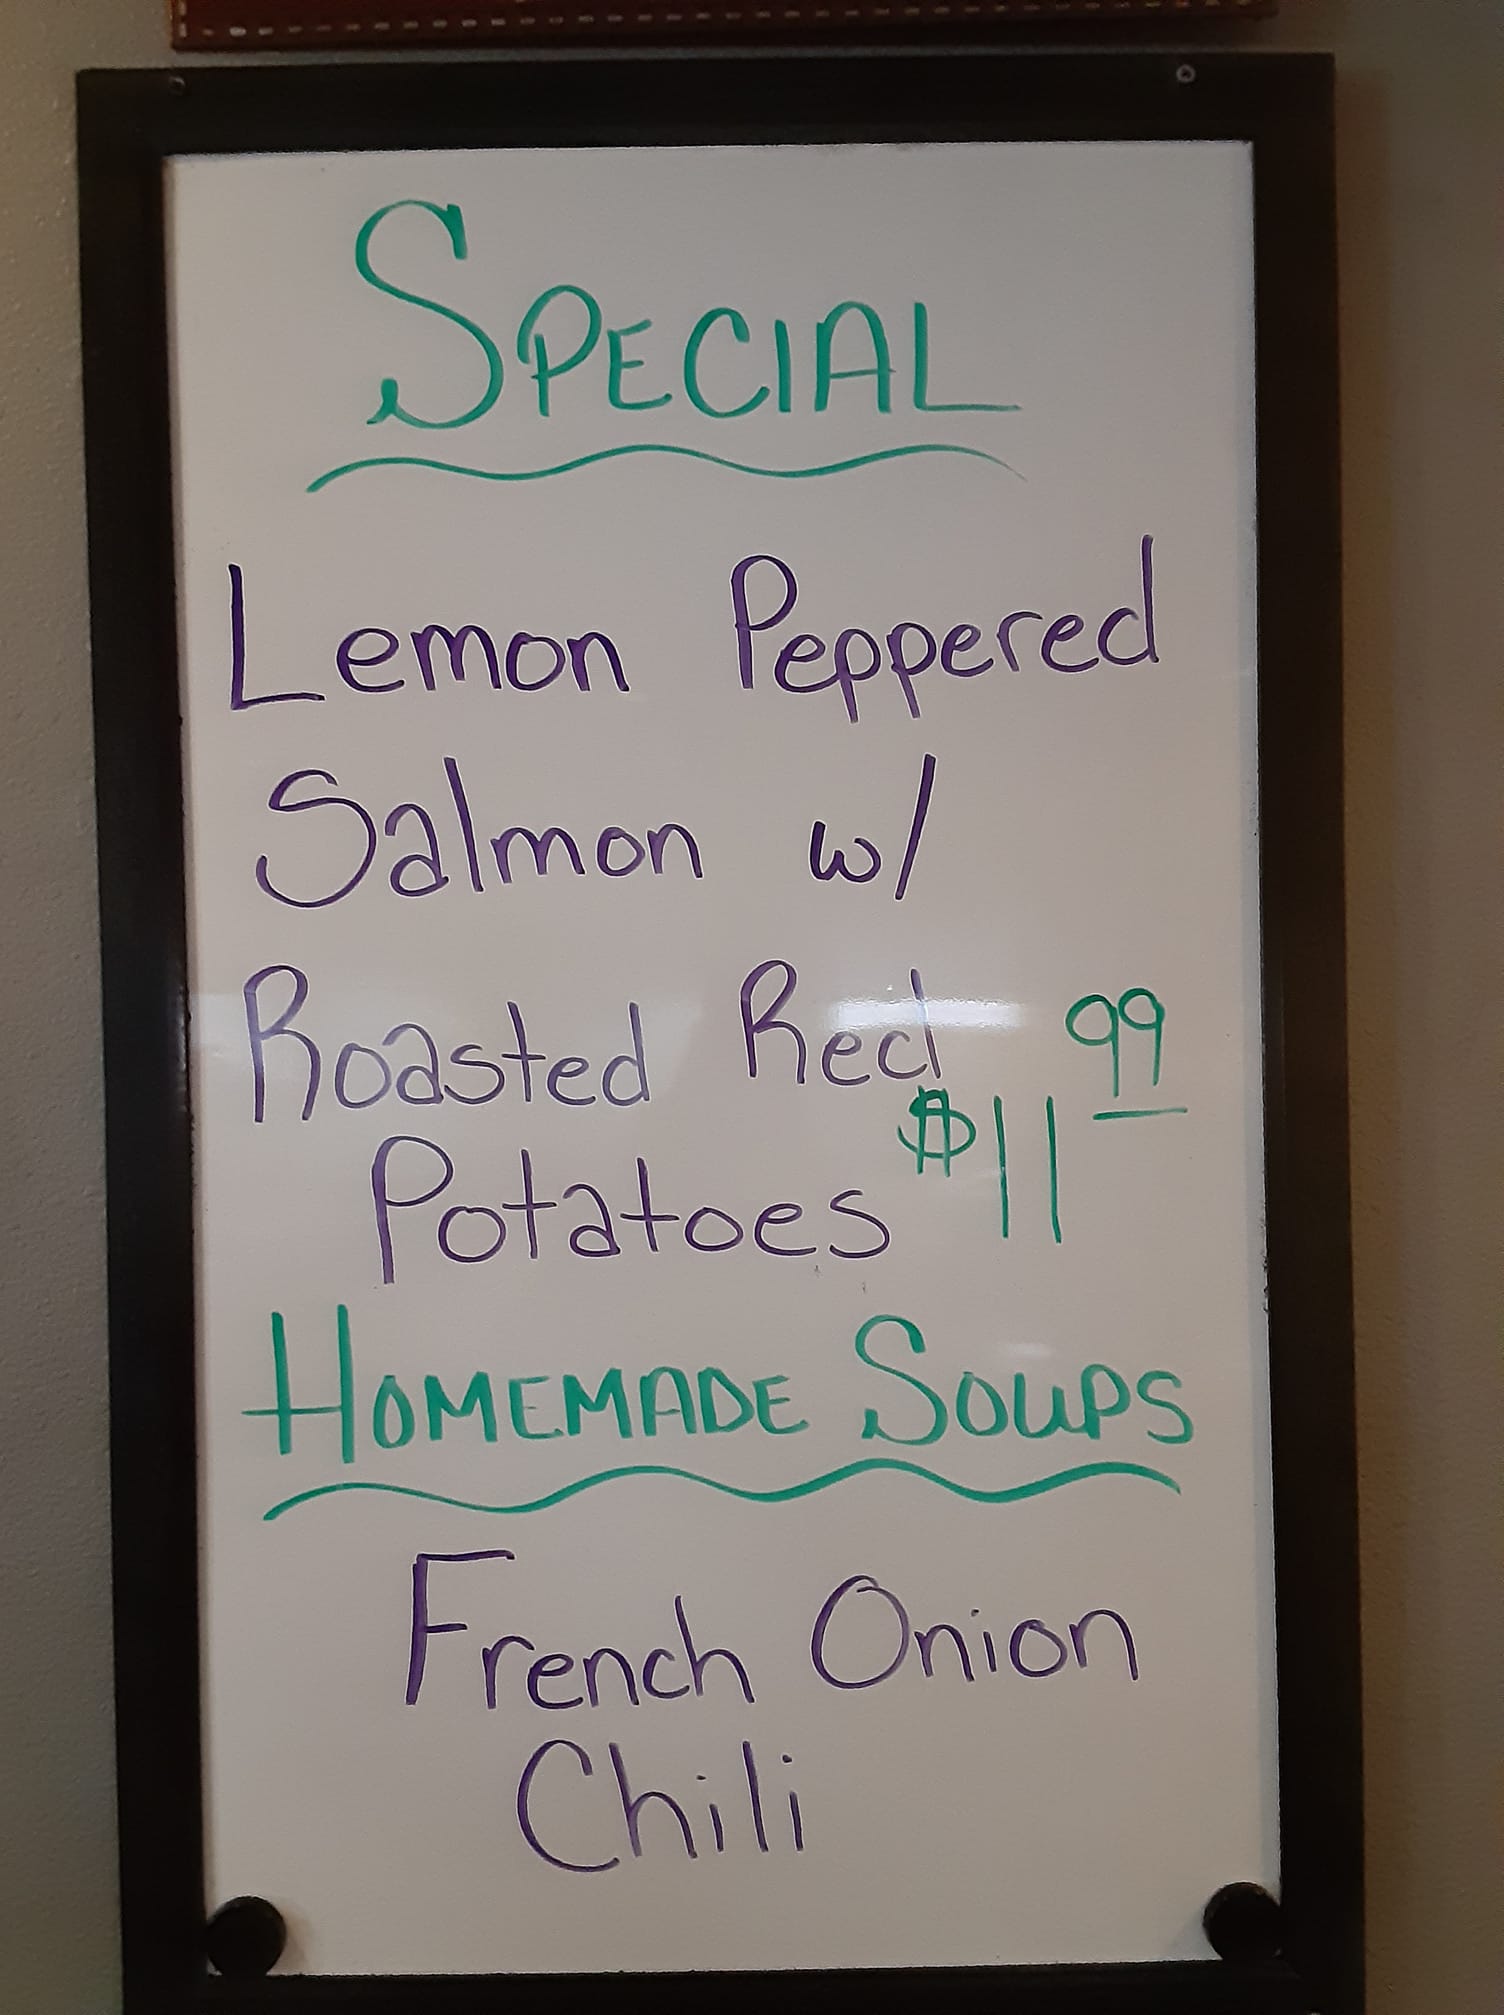 SPECIAL
Lemon Peppered
Salmon w/
Roasted Red
Potatoes $11 99
HOMEMADE SOUPS
French Onion
Chili